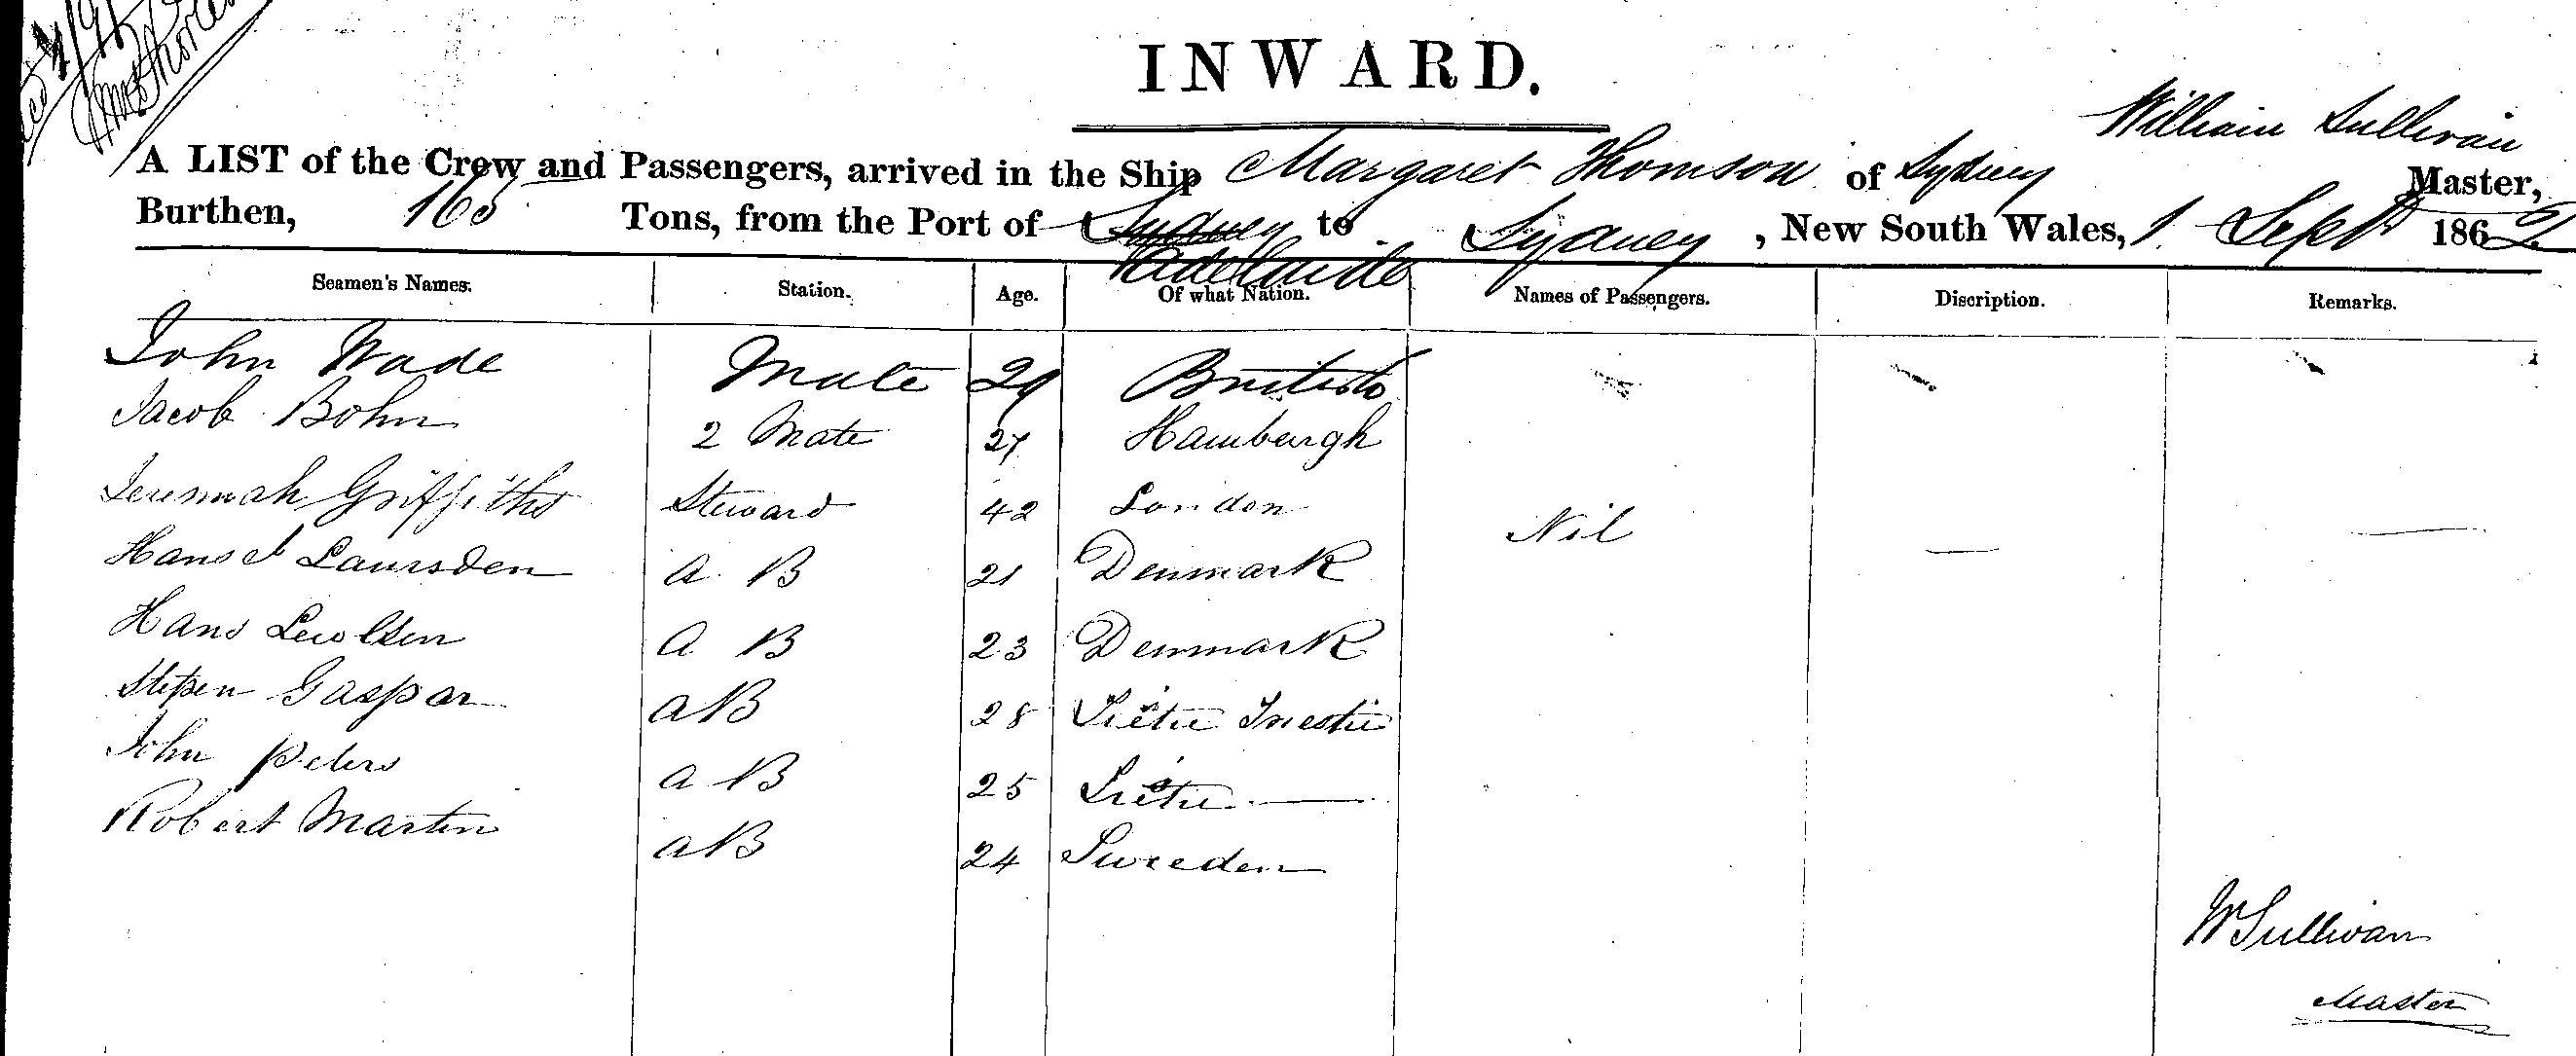 INWARD.
William Sullivan
A LIST of the Crew and Passengers, arrived in the Ship Margaret Thomson of Sydney Master,
Burthen, 165 Tons, from the Port of Sydney to Sydney, New South Wales, 1 Sept 1862
Adelaide
Seamen's Names. Station. Age. Of what Nation. Names of Passengers. Discription. Remarks.
John Wade Mate 29 British
Jacob Bohn 2 Mate 27 Hamburgh
Jeremiah Griffiths Steward 42 London Nil
Hans Laursden A B 21 Denmark
Hans A B 23 Denmark
Stepen Gaspar A B 28
John Peters A B 25
Robert Martin A B 24 Sweeden
W Sullivan
Master